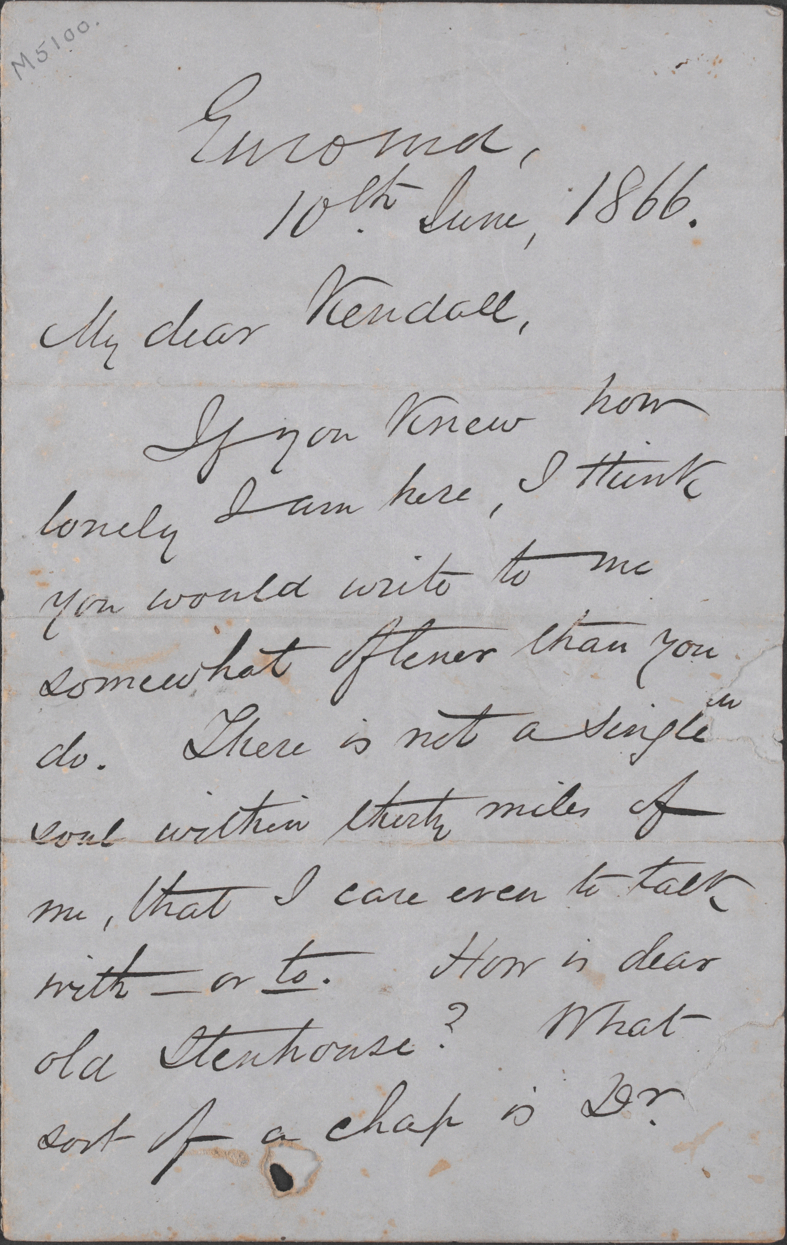 M5100.
Euroma,
10th. June, 1866.
My dear Kendall,
If you knew how
lonely I am here, I think
you would write to me
somewhat oftener than you
do. There is not a single
soul within thirty miles of
me, that I care even to talk
with — or to. How is dear
old Stenhouse? What
sort of a chap is Dr.